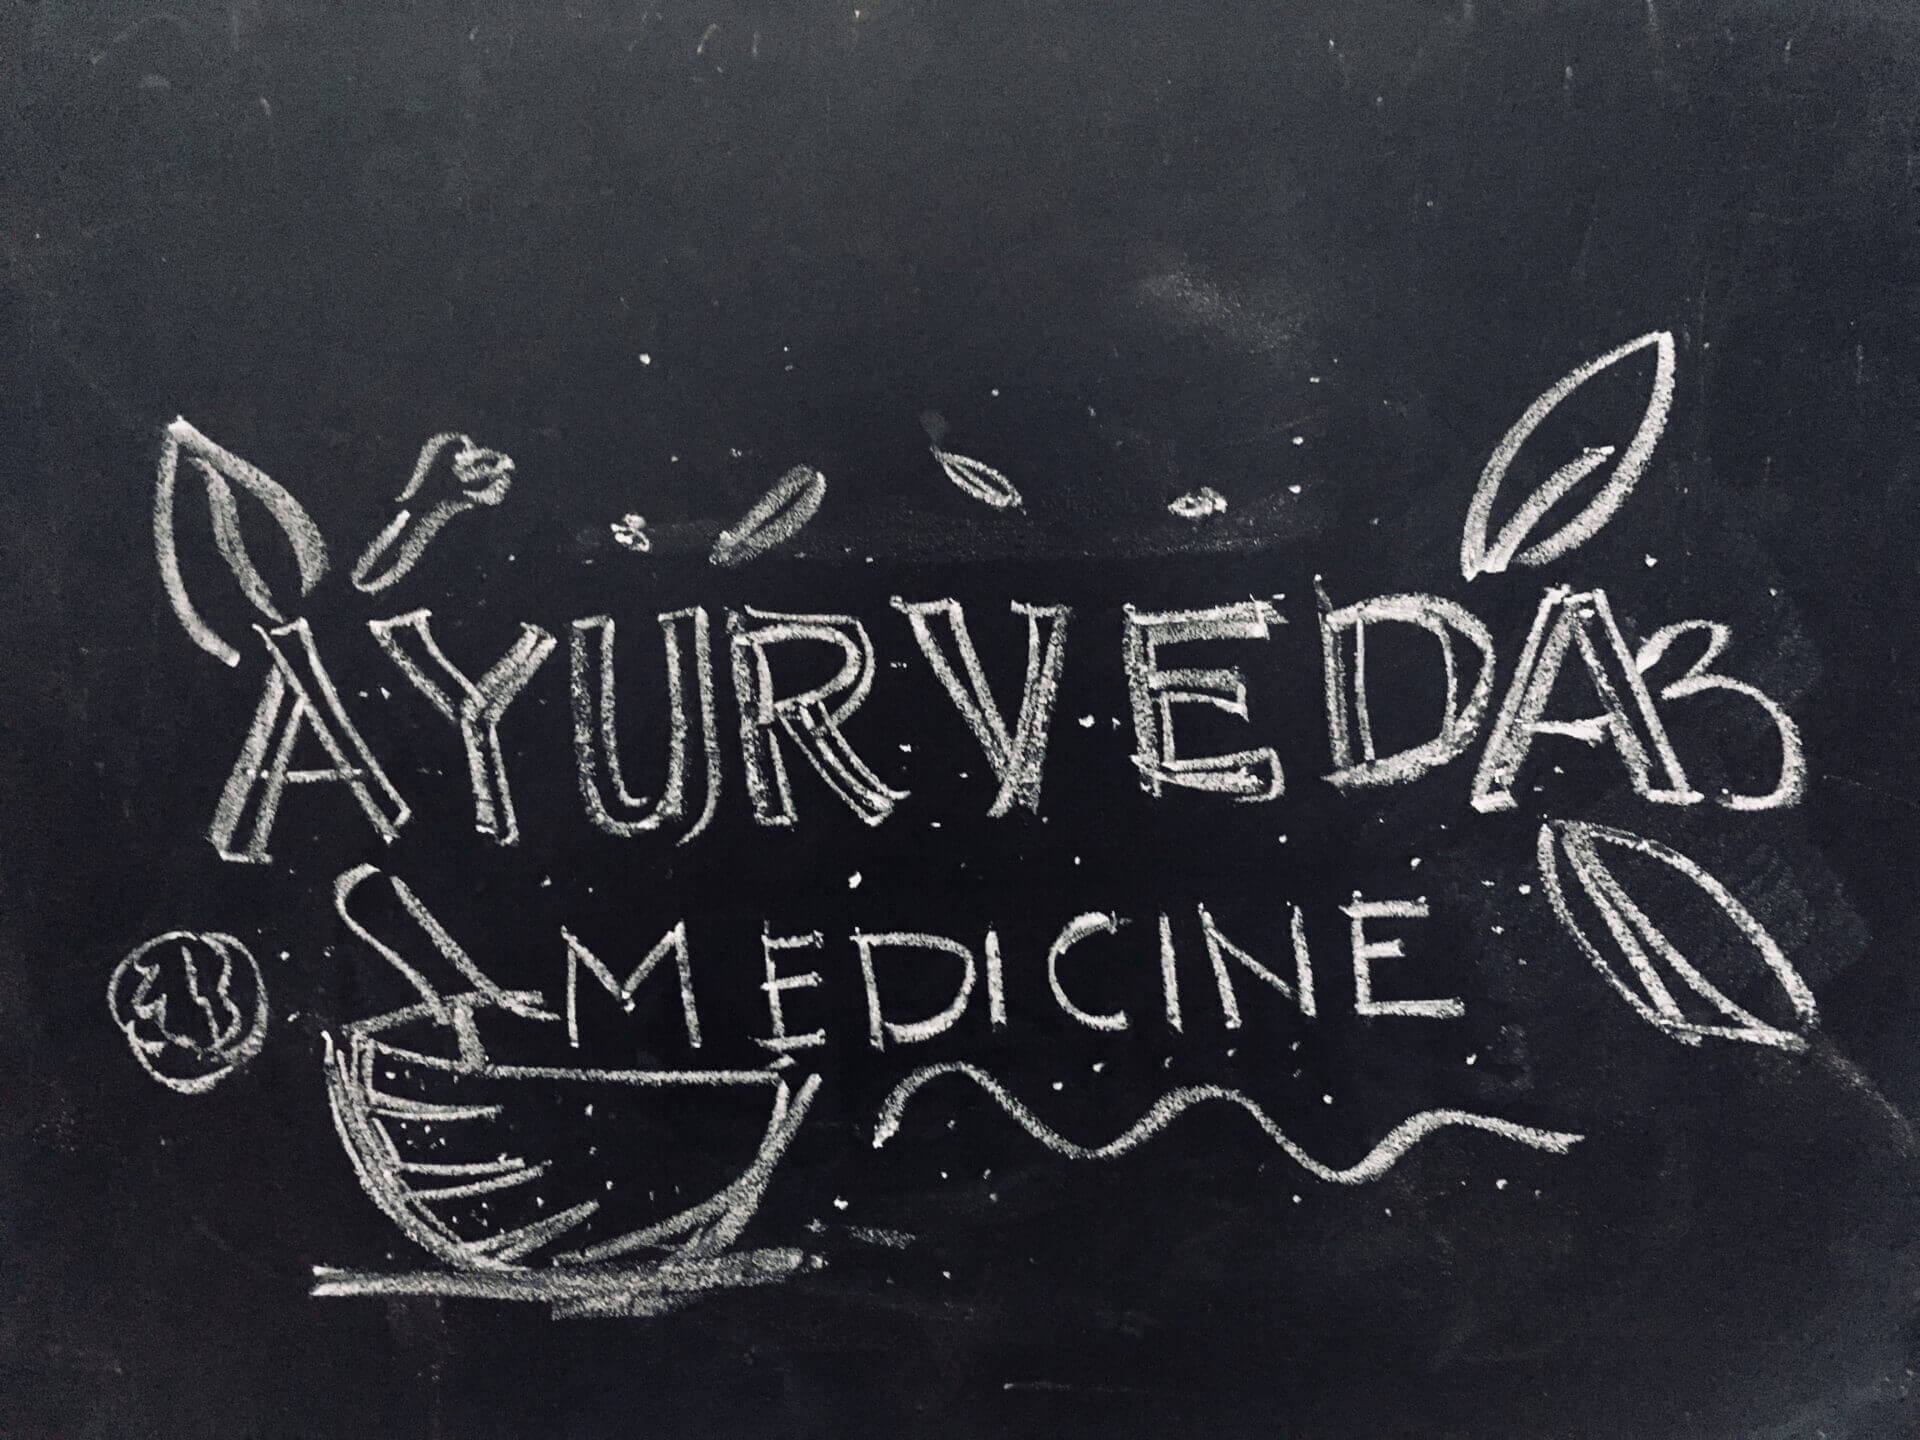 AYURVEDA
MEDICINE